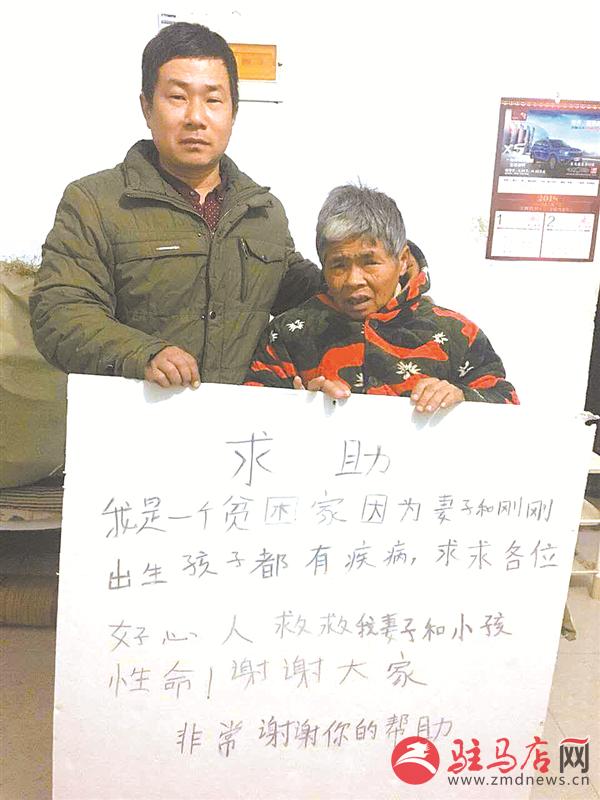 X5
2018
1
2
求 助
我是一个贫困家因为妻子和刚刚
出生孩子都有疾病,求求各位
好心人救救我妻子和小孩
性命!谢谢大家
非常谢谢你的帮助
驻马店网
www.zmdnews.cn